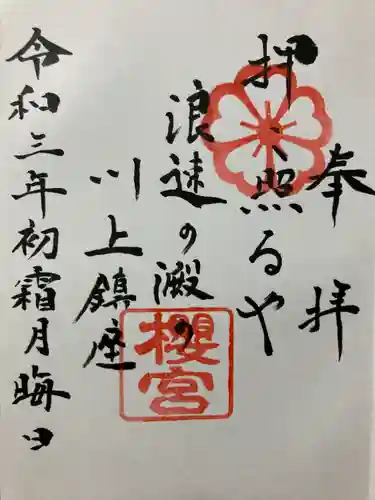 奉拝
押し照るや
浪速の澱の
川上鎮座
令和三年初霜月晦日
櫻宮